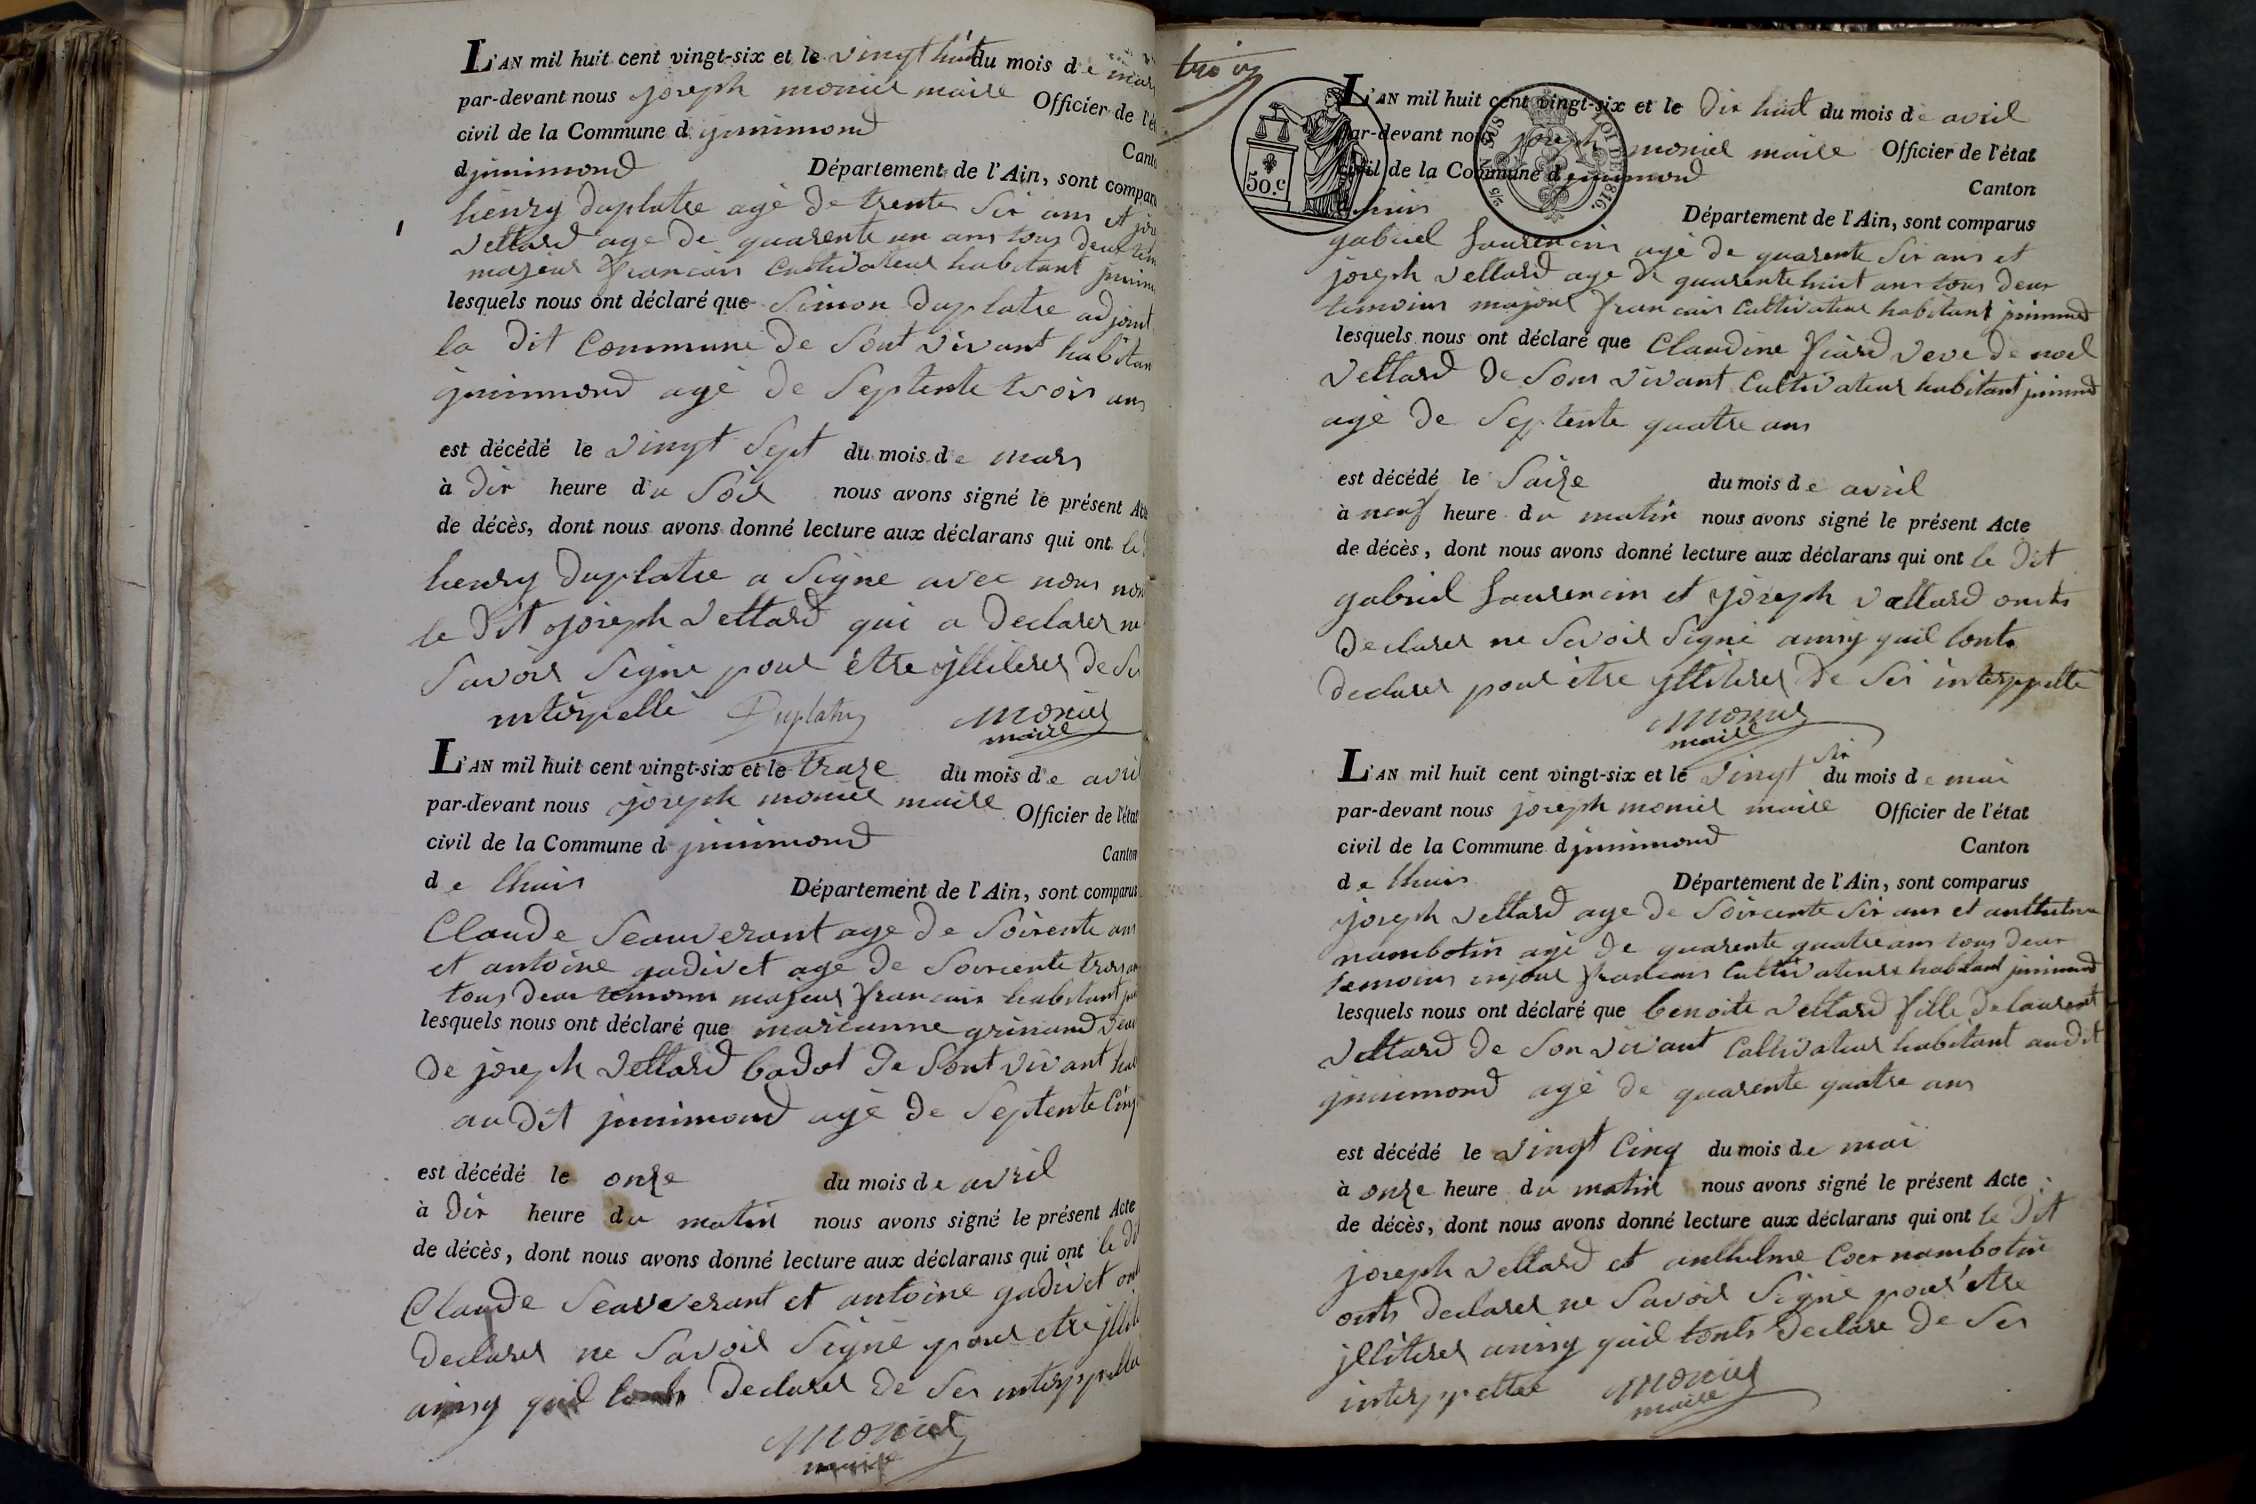 L'AN mil huit cent vingt-six et le vingt huit du mois de mar
par-devant nous joseph monier maire Officier de l'ét
civil de la Commune d jnnimond
Cant
d jnnimond Département de l'Ain, sont compar
henry duplatre agé de trente Six ans et jos
Vettard age de quarente un ans tous deux tem
majeur francais Cultivateur habitant jnnim
lesquels nous ont déclaré que Simon Duplatre adjoint
la dit Commune de Sont vivant habitan
jnnimond agé de Septente trois ans
est décédé le vingt Sept du mois de mars
à dix heure du Soir nous avons signé le présent Acte
de décès, dont nous avons donné lecture aux déclarans qui ont le d
henry duplatre a Signe avec nous non
le dit joseph Vettard qui a Declarer ne
Savoir Signe pour être jlliterer de Se
interpellé Duplatre monier
maire
L'AN mil huit cent vingt-six et le traze du mois de avri
par-devant nous joseph monier maire Officier de l'état
civil de la Commune d jnnimond
Canton
de lhuis Département de l'Ain, sont comparus
Claude Seauverant age de Soixente ans
et antoine gudivet age de Soixcente trois an
tous deux temoins majeur francais habitant jnn
lesquels nous ont déclaré que marianne grinand veu
De joseph Vettard badot de Sont vivant hab
au dit jnnimond agé de Septente Cinq
est décédé le onze du mois de avril
à dix heure du matin nous avons signé le présent Acte
de décès, dont nous avons donné lecture aux déclarans qui ont le dit
Claude Seauverant et antoine gudivet ont
declarer ne Savoir Signé pour etre jllit
ainsy quil lonts Declarer de Ses interppella
monier
maire
trois
L'AN mil huit cent vingt-six et le dix huit du mois de avril
par-devant nous joseph monier maire Officier de l'état
civil de la Commune d jnnimond
Canton
d lhuis
Département de l'Ain, sont comparus
50.c
LOI DE 1816.
gabriel Laurencin agé de quarente Six ans et
joseph Vettard age de quarente huit ans tous deux
temoins majour francais Cultivateur habitant jnnimond
lesquels nous ont déclaré que Claudine fiard veve de noel
Vettard de Son vivant Cultivateur habitant jnnimond
agé de Septente quatre ans
est décédé le Saize du mois de avril
à neuf heure du matin nous avons signé le présent Acte
de décès, dont nous avons donné lecture aux déclarans qui ont le dit
gabriel Laurencin et joseph Vettard onts
Declarer ne Savoir Signé ainsy quil lonts
declarer pour être jlliterer de Ses interppelle
monier
maire
L'AN mil huit cent vingt-six et le vingt Six du mois de mai
par-devant nous joseph monier maire Officier de l'état
civil de la Commune d jnnimond Canton
de lhuis Département de l'Ain, sont comparus
joseph Vettard age de Soixcente Six ans et anthelme
nambotin agé de quarente quatre ans tous deux
temoins majour francais Cultivateurs habitant jnnimond
lesquels nous ont déclaré que benoite Vettard fille de laurent
Vettard de Son vivant Cultivateur habitant audit
jnnimond agé de quarente quatre ans
est décédé le vingt Cinq du mois de mai
à onze heure du matin nous avons signé le présent Acte
de décès, dont nous avons donné lecture aux déclarans qui ont le dit
joseph Vettard et anthelme nambotin
onts declarer ne Savoir Signé pour être
jlliterer ainsy quil lonts Declare de Ses
interppellee monier
maire